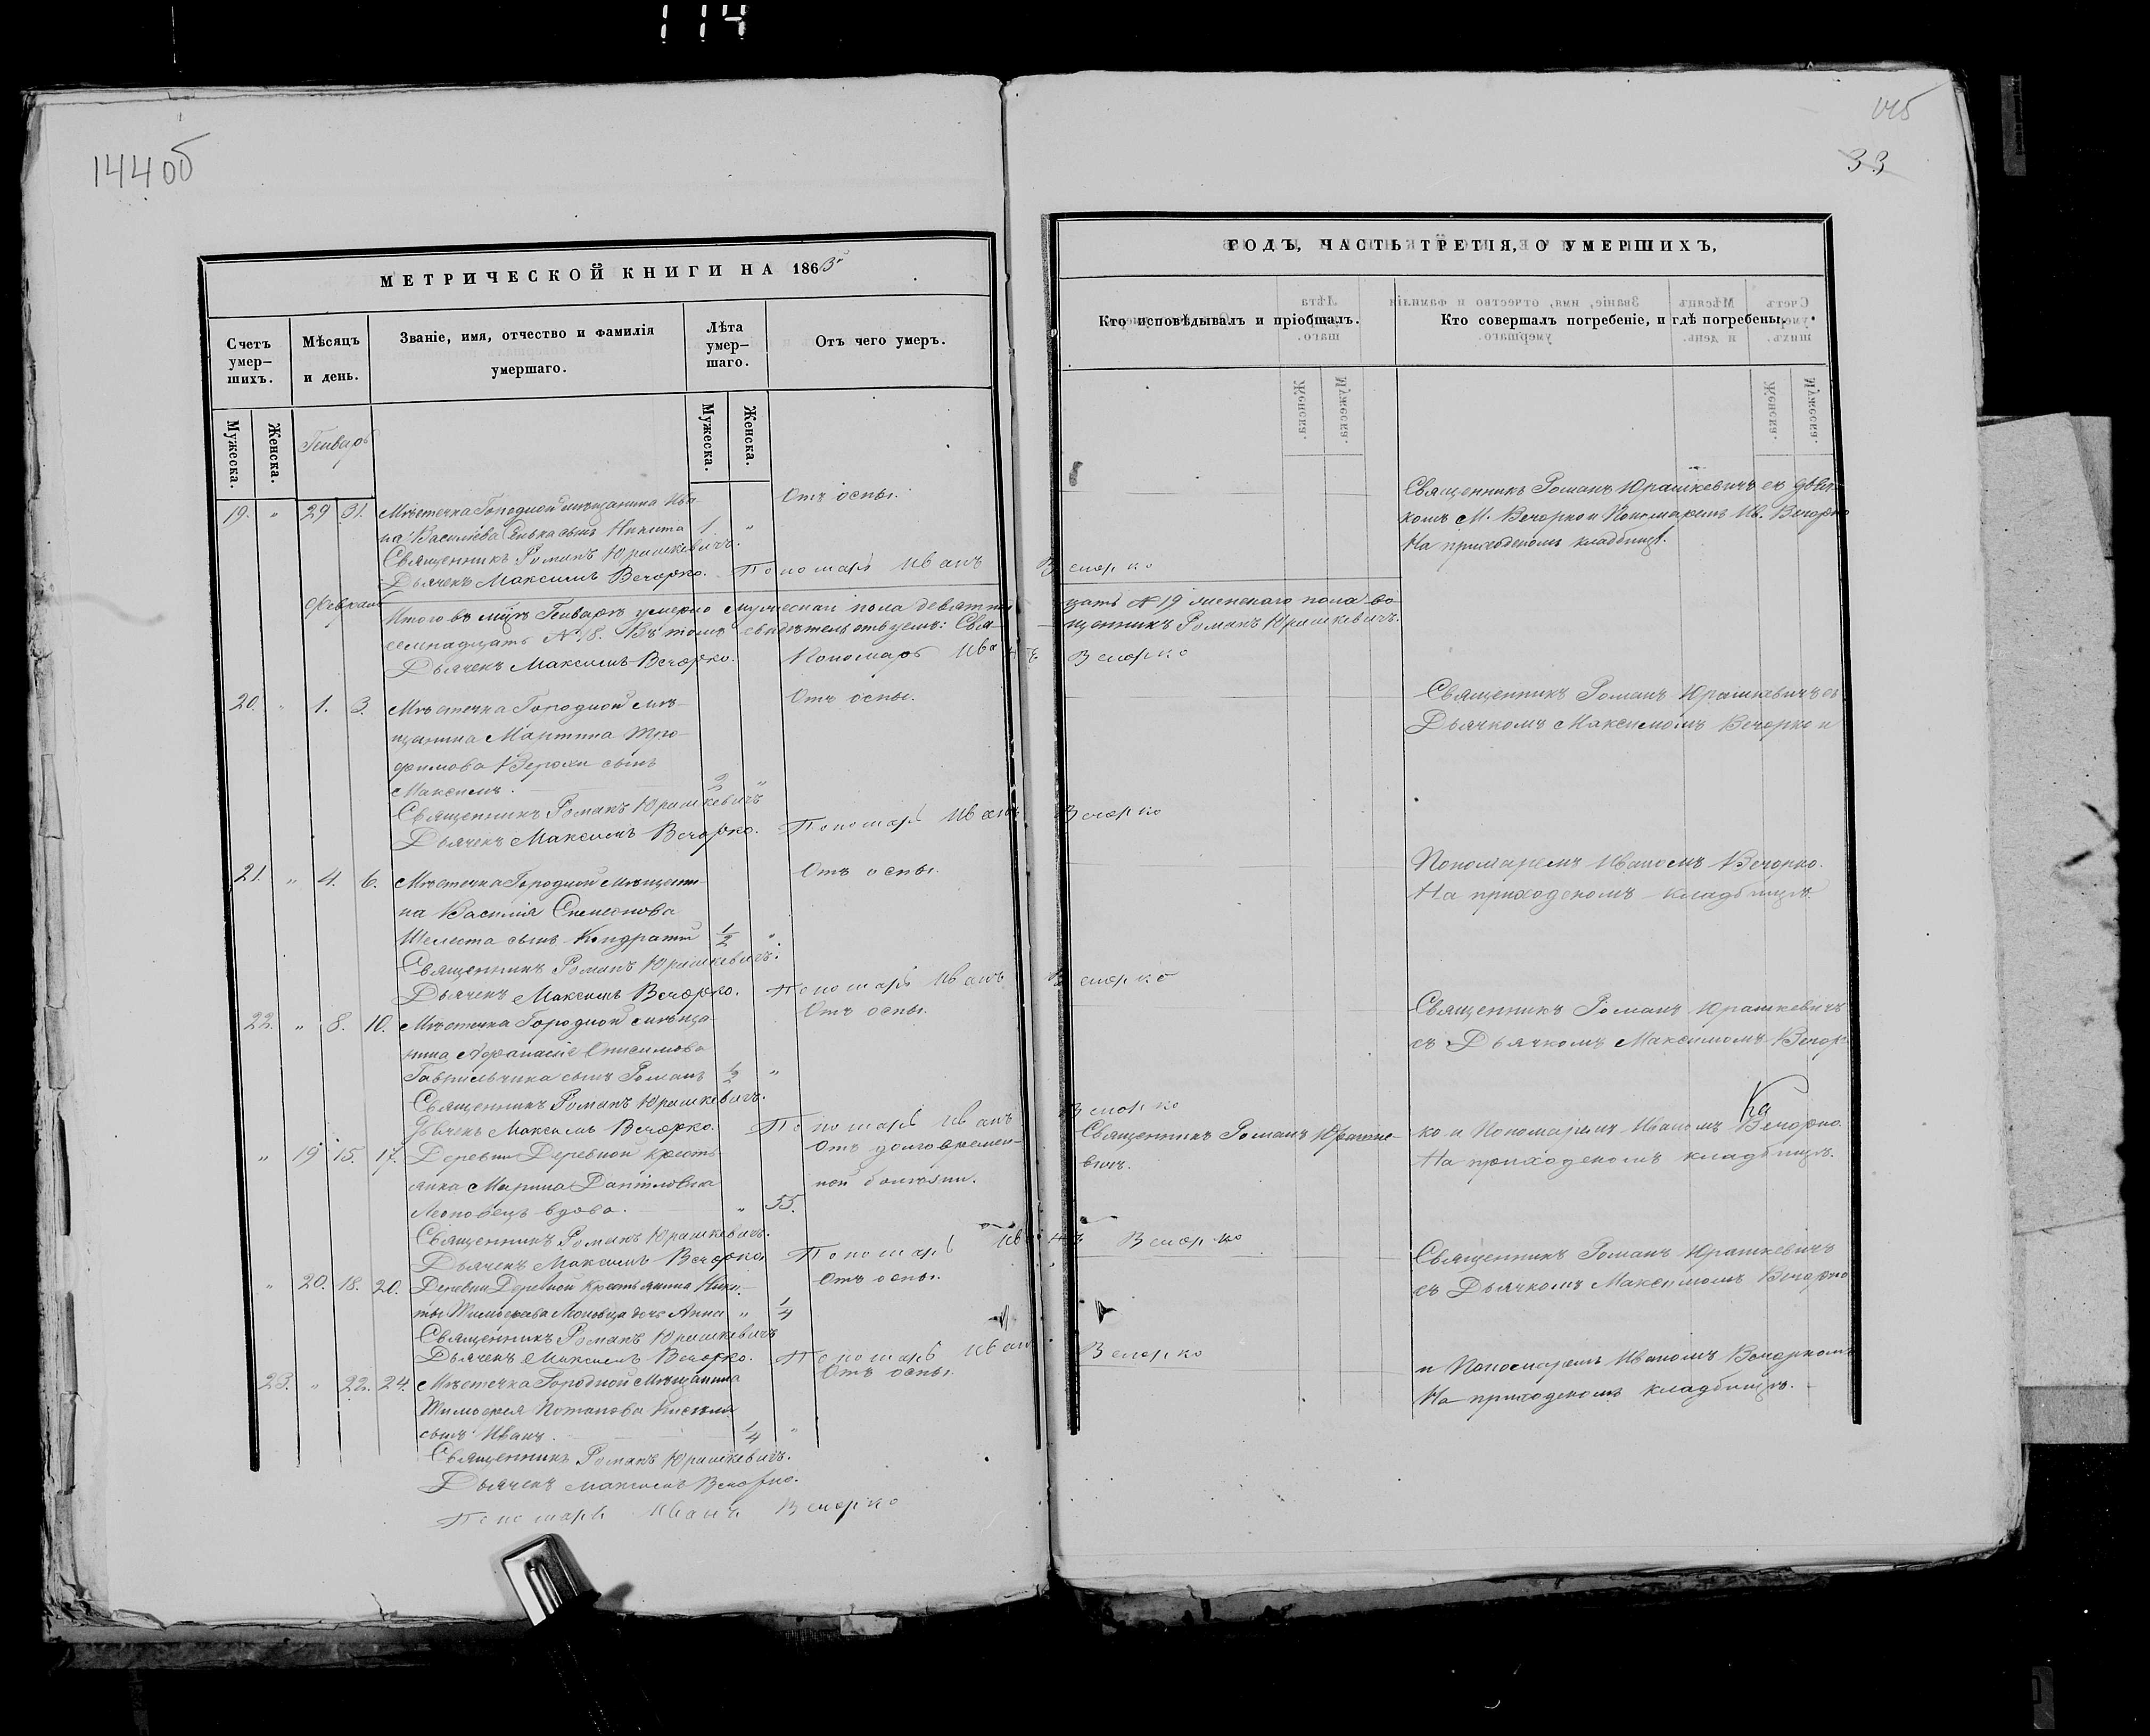 114
144об
145
33
МЕТРИЧЕСКОЙ КНИГИ НА 1863й
Счетъ умер-шихъ.
Мѣсяцъ и день.
Званіе, имя, отчество и фамилія умершаго.
Лѣта умер-шаго.
Отъ чего умеръ.
Мужеска.
Женска.
Мужеска.
Женска.
Генварь
19. " 29 31. Мѣстечка Городной мѣщанина Ива-
на Васильева сынъ Никита 1. "
Отъ оспы.
Священникъ Романъ Юрашкевичъ.
Дьячекъ Максимъ Вечорко. Пономарь Иванъ Вечорко
Февраль
Итого въ мцѣ Генварѣ умерло мужескаго пола девятнад
цать № 19 женскаго пола во-
семнадцать № 18. Въ томъ свидѣтельствуемъ: Свя-
щенникъ Романъ Юрашкевичъ.
Дьячекъ Максимъ Вечорко. Пономарь Иванъ Вечорко
20. " 1. 3. Мѣстечка Городной мѣ-
щанина Мартина Тро-
фимова сынъ
Максимъ. "
Отъ оспы.
Священникъ Романъ Юрашкевичъ
Дьячекъ Максимъ Вечорко. Пономарь Иванъ Вечорко
21. " 4. 6. Мѣстечка Городной Мѣщани-
на Василія Симеонова
Шелеста сынъ Кондратій 1/2 "
Отъ оспы.
Священникъ Романъ Юрашкевичъ.
Дьячекъ Максимъ Вечорко. Пономарь Иванъ Вечорко
22. " 8. 10. Мѣстечка Городной мѣща-
нина Афанасія Онисимова
Гаврильчика сынъ Романъ 1/2 "
Отъ оспы.
Священникъ Романъ Юрашкевичъ.
Дьячекъ Максимъ Вечорко. Пономарь Иванъ Вечорко
" 19 15. 17. Деревни Деревной кресть
янка Марина Даніиловна
вдова. " 55.
Отъ долговремен-
ной болѣзни.
Священникъ Романъ Юрашкевичъ.
Дьячекъ Максимъ Вечорко. Пономарь Иванъ Вечорко
" 20. 18. 20. Деревни Деревной крестьянина Ники-
ты Тимофеева дочь Анна " 1/4
Отъ оспы.
Священникъ Романъ Юрашкевичъ
Дьячекъ Максимъ Вечорко. Пономарь Иванъ Вечорко
23. " 22. 24. Мѣстечка Городной Мѣщанина
Тимофея Потапова
сынъ Иванъ. 1/4 "
Отъ оспы.
Священникъ Романъ Юрашкевичъ.
Дьячекъ Максимъ Вечорко.
Пономарь Иванъ Вечорко
ГОДЪ, ЧАСТЬ ТРЕТІЯ, О УМЕРШИХЪ,
Кто исповѣдывалъ и пріобщалъ.
Кто совершалъ погребеніе, и гдѣ погребены.
Священникъ Романъ Юрашкевичъ съ дьяч-
комъ М. Вечорко и Пономаремъ Ив. Вечорко
На приходскомъ кладбищѣ.
Священникъ Романъ Юрашкевичъ съ
Дьячкомъ Максимомъ Вечорко и
Пономаремъ Иваномъ Вечорко.
На приходскомъ кладбищѣ.
Священникъ Романъ Юрашкевичъ
съ Дьячкомъ Максимомъ Вечор-
Священникъ Романъ Юрашке-
вичъ.
ко и Пономаремъ Иваномъ Вечорко.
На приходскомъ кладбищѣ.
Священникъ Романъ Юрашкевичъ
съ Дьячкомъ Максимомъ Вечорко
и Пономаремъ Иваномъ Вечоркомъ
На приходскомъ кладбищѣ.